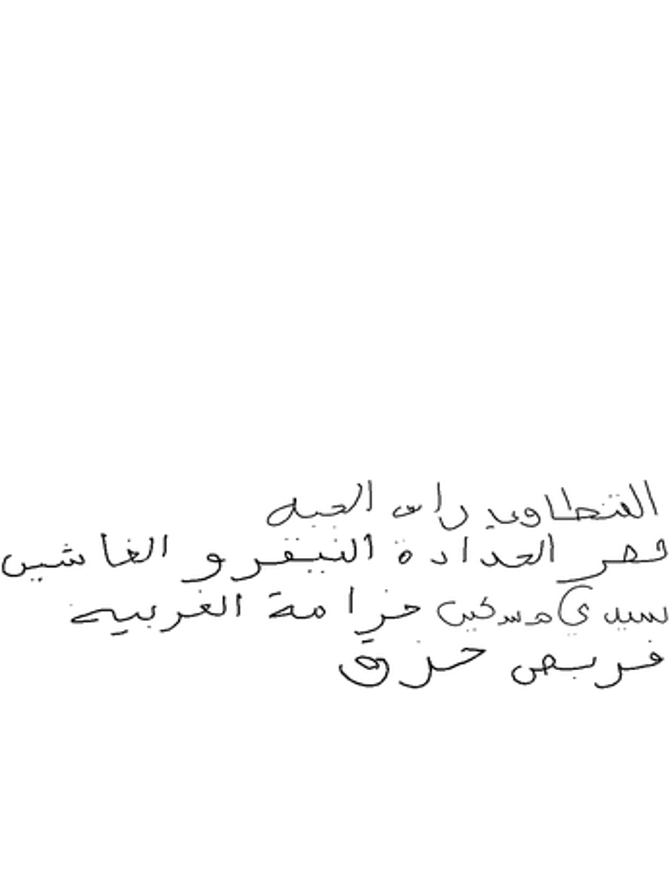 الفنطاوي راس الجبه
قصر الحدادة النيقرو الغاشين
سيدي مسكين حزامة الغربية
فريص حزق